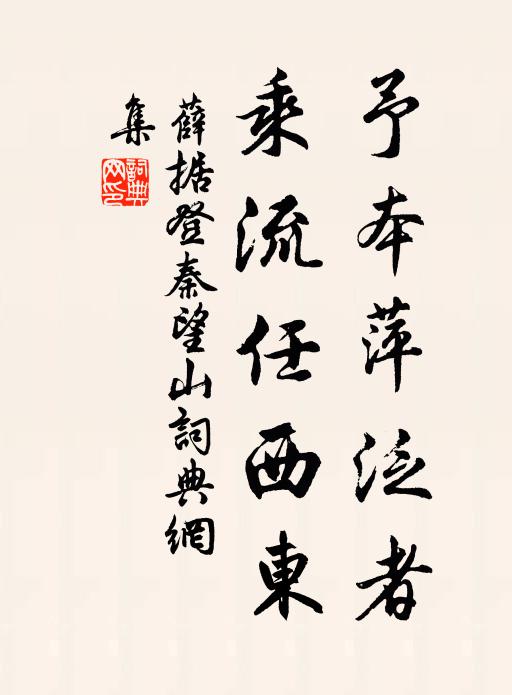 予本萍泛者
乘流任西東
薛据登秦望山詞典網
集
詞典網印